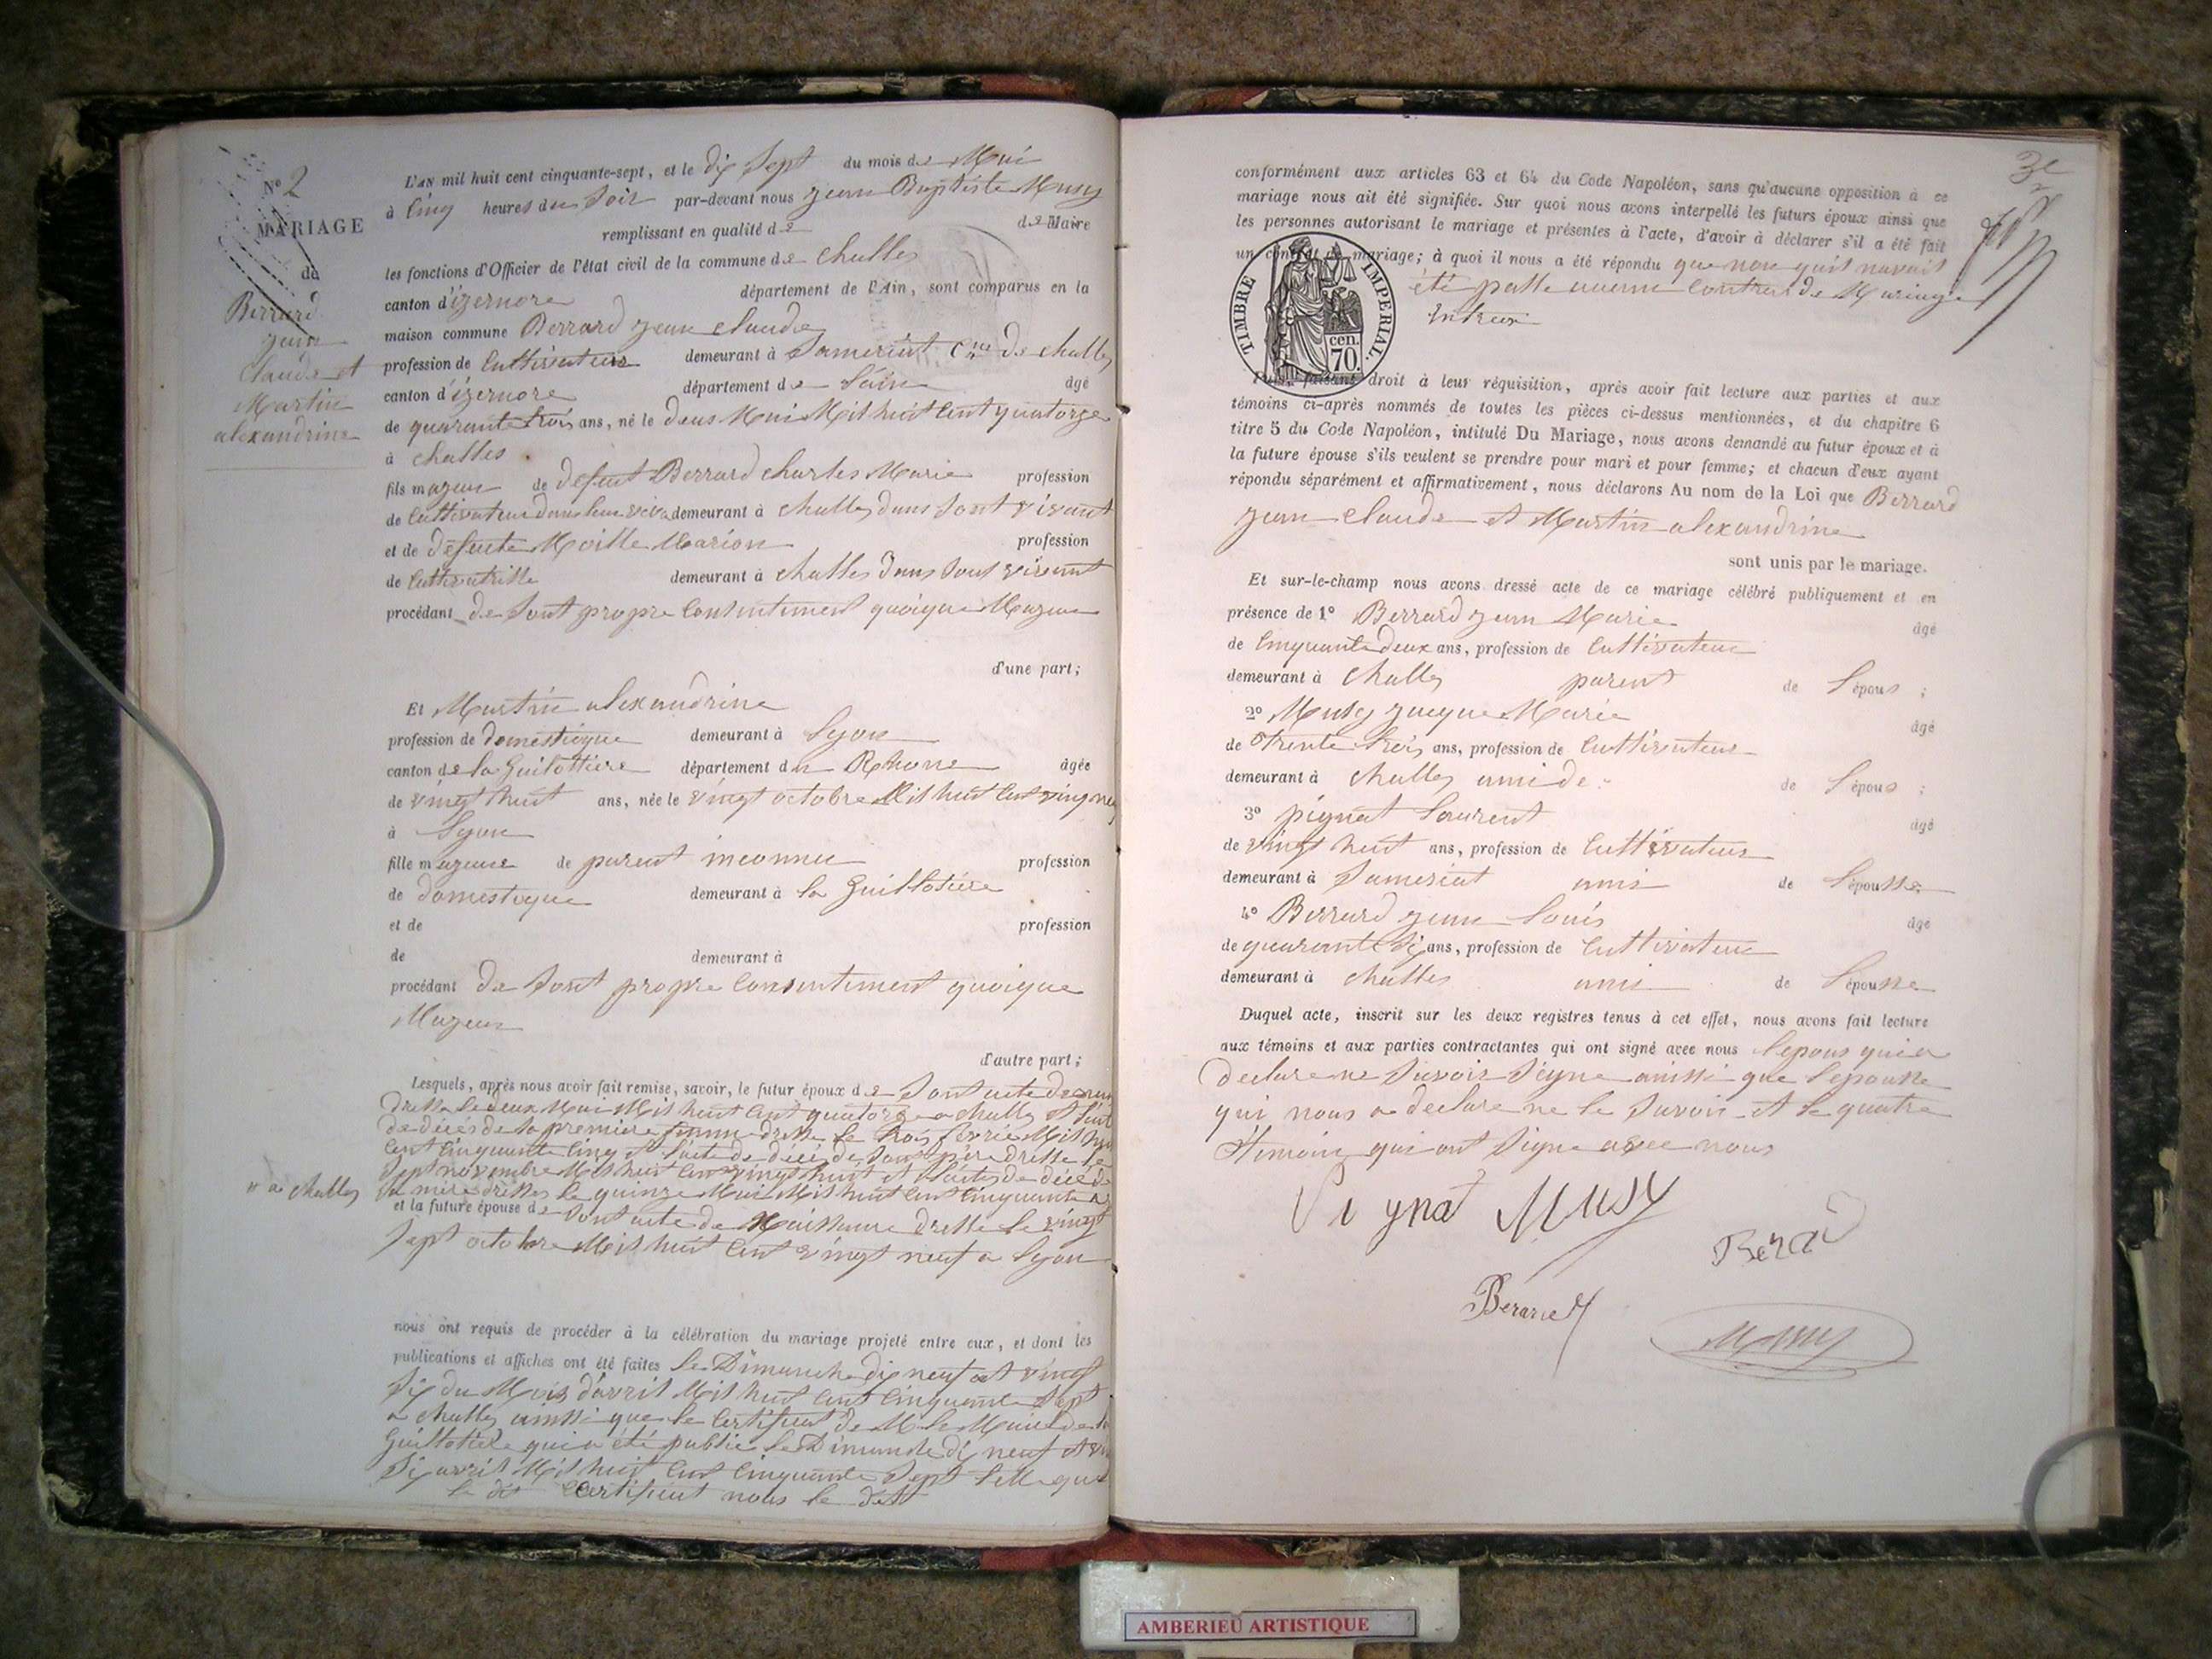 N° 2
MARIAGE
du
Berrard
jean
Claude et
Martin
alexandrine
L'AN mil huit cent cinquante-sept, et le dix Sept du mois de Mai
à Cinq heures du Soir par-devant nous jean Baptiste Musy
remplissant en qualité de de Maire
les fonctions d'Officier de l'état civil de la commune de Challes
canton d'izernore département de l'Ain, sont comparus en la
maison commune Berrard jean claude
profession de Cultivateur demeurant à Sameriat Cne de challes
canton d'izernore département de l'ain âgé
de quarante trois ans, né le deux Mai Mil huit Cent quatorze
à Challes
fils majeur de defunt Berrard charles Marie profession
de Cultivateur dans leur vivan demeurant à Challes dans Sont vivant
et de defunte Moille Marion profession
de Cultivatrille demeurant à challes dans Sont vivant
procédant de Sont propre Consentiment quoique Majeur
d'une part;
Et Martin alexandrine
profession de domestique demeurant à Lyon
canton de la Guilottiere département du Rhone âgée
de vingt huit ans, née le vingt octobre Mil huit Cent vingt neuf
à Lyon
fille majeure de parent inconnu profession
de domestique demeurant à la Guillotiere
et de profession
de demeurant à
procédant de Sont propre Consentiment quoique
Majeur
d'autre part;
Lesquels, après nous avoir fait remise, savoir, le futur époux de Sont acte de
dresse le deux Mai Mil huit Cent quatorze a challes et l'acte
de décés de sa premiere femme dresse le trois fevrie Mil huit
Cent Cinquante Cinq et l'acte de décé de Sont père dresse le
Sept novembre Mil huit Cent vingt huit et l'acte de décé de
" a challes Sa mère dresse le quinze Mai Mil huit Cent Cinquante
et la future épouse de Sont acte de Naissance dresse le vingt
Sept octobre Mil huit Cent vingt neuf a Lyon
nous ont requis de procéder à la célébration du mariage projeté entre eux, et dont les
publications et affiches ont été faites le Dimanche dix neuf et vingt
Six du Mois d'avril Mil huit Cent Cinquante Sept
a challes ainssi que le Certificat de M. le Maire de la
Guillotière qui a été publié le Dimanche dix neuf et
Six avril Mil huit Cent Cinquante Sept telle que
le dit Certificat nous le dit
conformément aux articles 63 et 64 du Code Napoléon, sans qu'aucune opposition à ce
mariage nous ait été signifiée. Sur quoi nous avons interpellé les futurs époux ainsi que
les personnes autorisant le mariage et présentes à l'acte, d'avoir à déclarer s'il a été fait
un contrat de mariage; à quoi il nous a été répondu que non quil navait
été passe aucun Contrat de Mariage
Entreux
TIMBRE IMPERIAL.
cen.
70.
Puis, faisant droit à leur réquisition, après avoir fait lecture aux parties et aux
témoins ci-après nommés de toutes les pièces ci-dessus mentionnées, et du chapitre 6
titre 5 du Code Napoléon, intitulé Du Mariage, nous avons demandé au futur époux et à
la future épouse s'ils veulent se prendre pour mari et pour femme; et chacun d'eux ayant
répondu séparément et affirmativement, nous déclarons Au nom de la Loi que Berrard
jean claude et Martin alexandrine
sont unis par le mariage.
Et sur-le-champ nous avons dressé acte de ce mariage célébré publiquement et en
présence de 1° Berrard jean Marie âgé
de Cinquante deux ans, profession de Cultivateur
demeurant à Challes parent de l'époux ;
2° Musy jacque Marie âgé
de trente trois ans, profession de Cultivateur
demeurant à Challes ami de de l'époux ;
3° pignat Laurent âgé
de vingt huit ans, profession de Cultivateur
demeurant à Sameriat ami de l'épousse;
4° Berrard jean Louis âgé
de quarante Six ans, profession de Cultivateur
demeurant à Challes ami de l'épousse
Duquel acte, inscrit sur les deux registres tenus à cet effet, nous avons fait lecture
aux témoins et aux parties contractantes qui ont signé avec nous l'epoux qui a
declare ne Savoir Signe ainssi que l'epousse
qui nous a declare ne le Savoir et le quatre
témoin qui ont Signe avec nous
Pignat Musy
Berard
Berard
Musy
AMBERIEU ARTISTIQUE